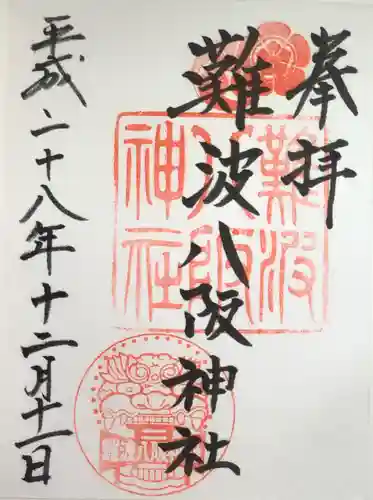 奉拝
難波八阪神社
難波
八阪
神社
平成二十八年十二月十一日